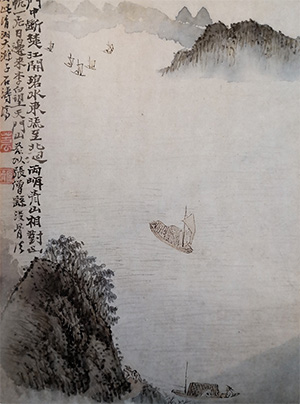 門中斷楚江開碧水東流至北迴兩岸青山相對出
帆一片日邊來李白望天門山以張僧繇沒骨法
清湘大滌子石濤